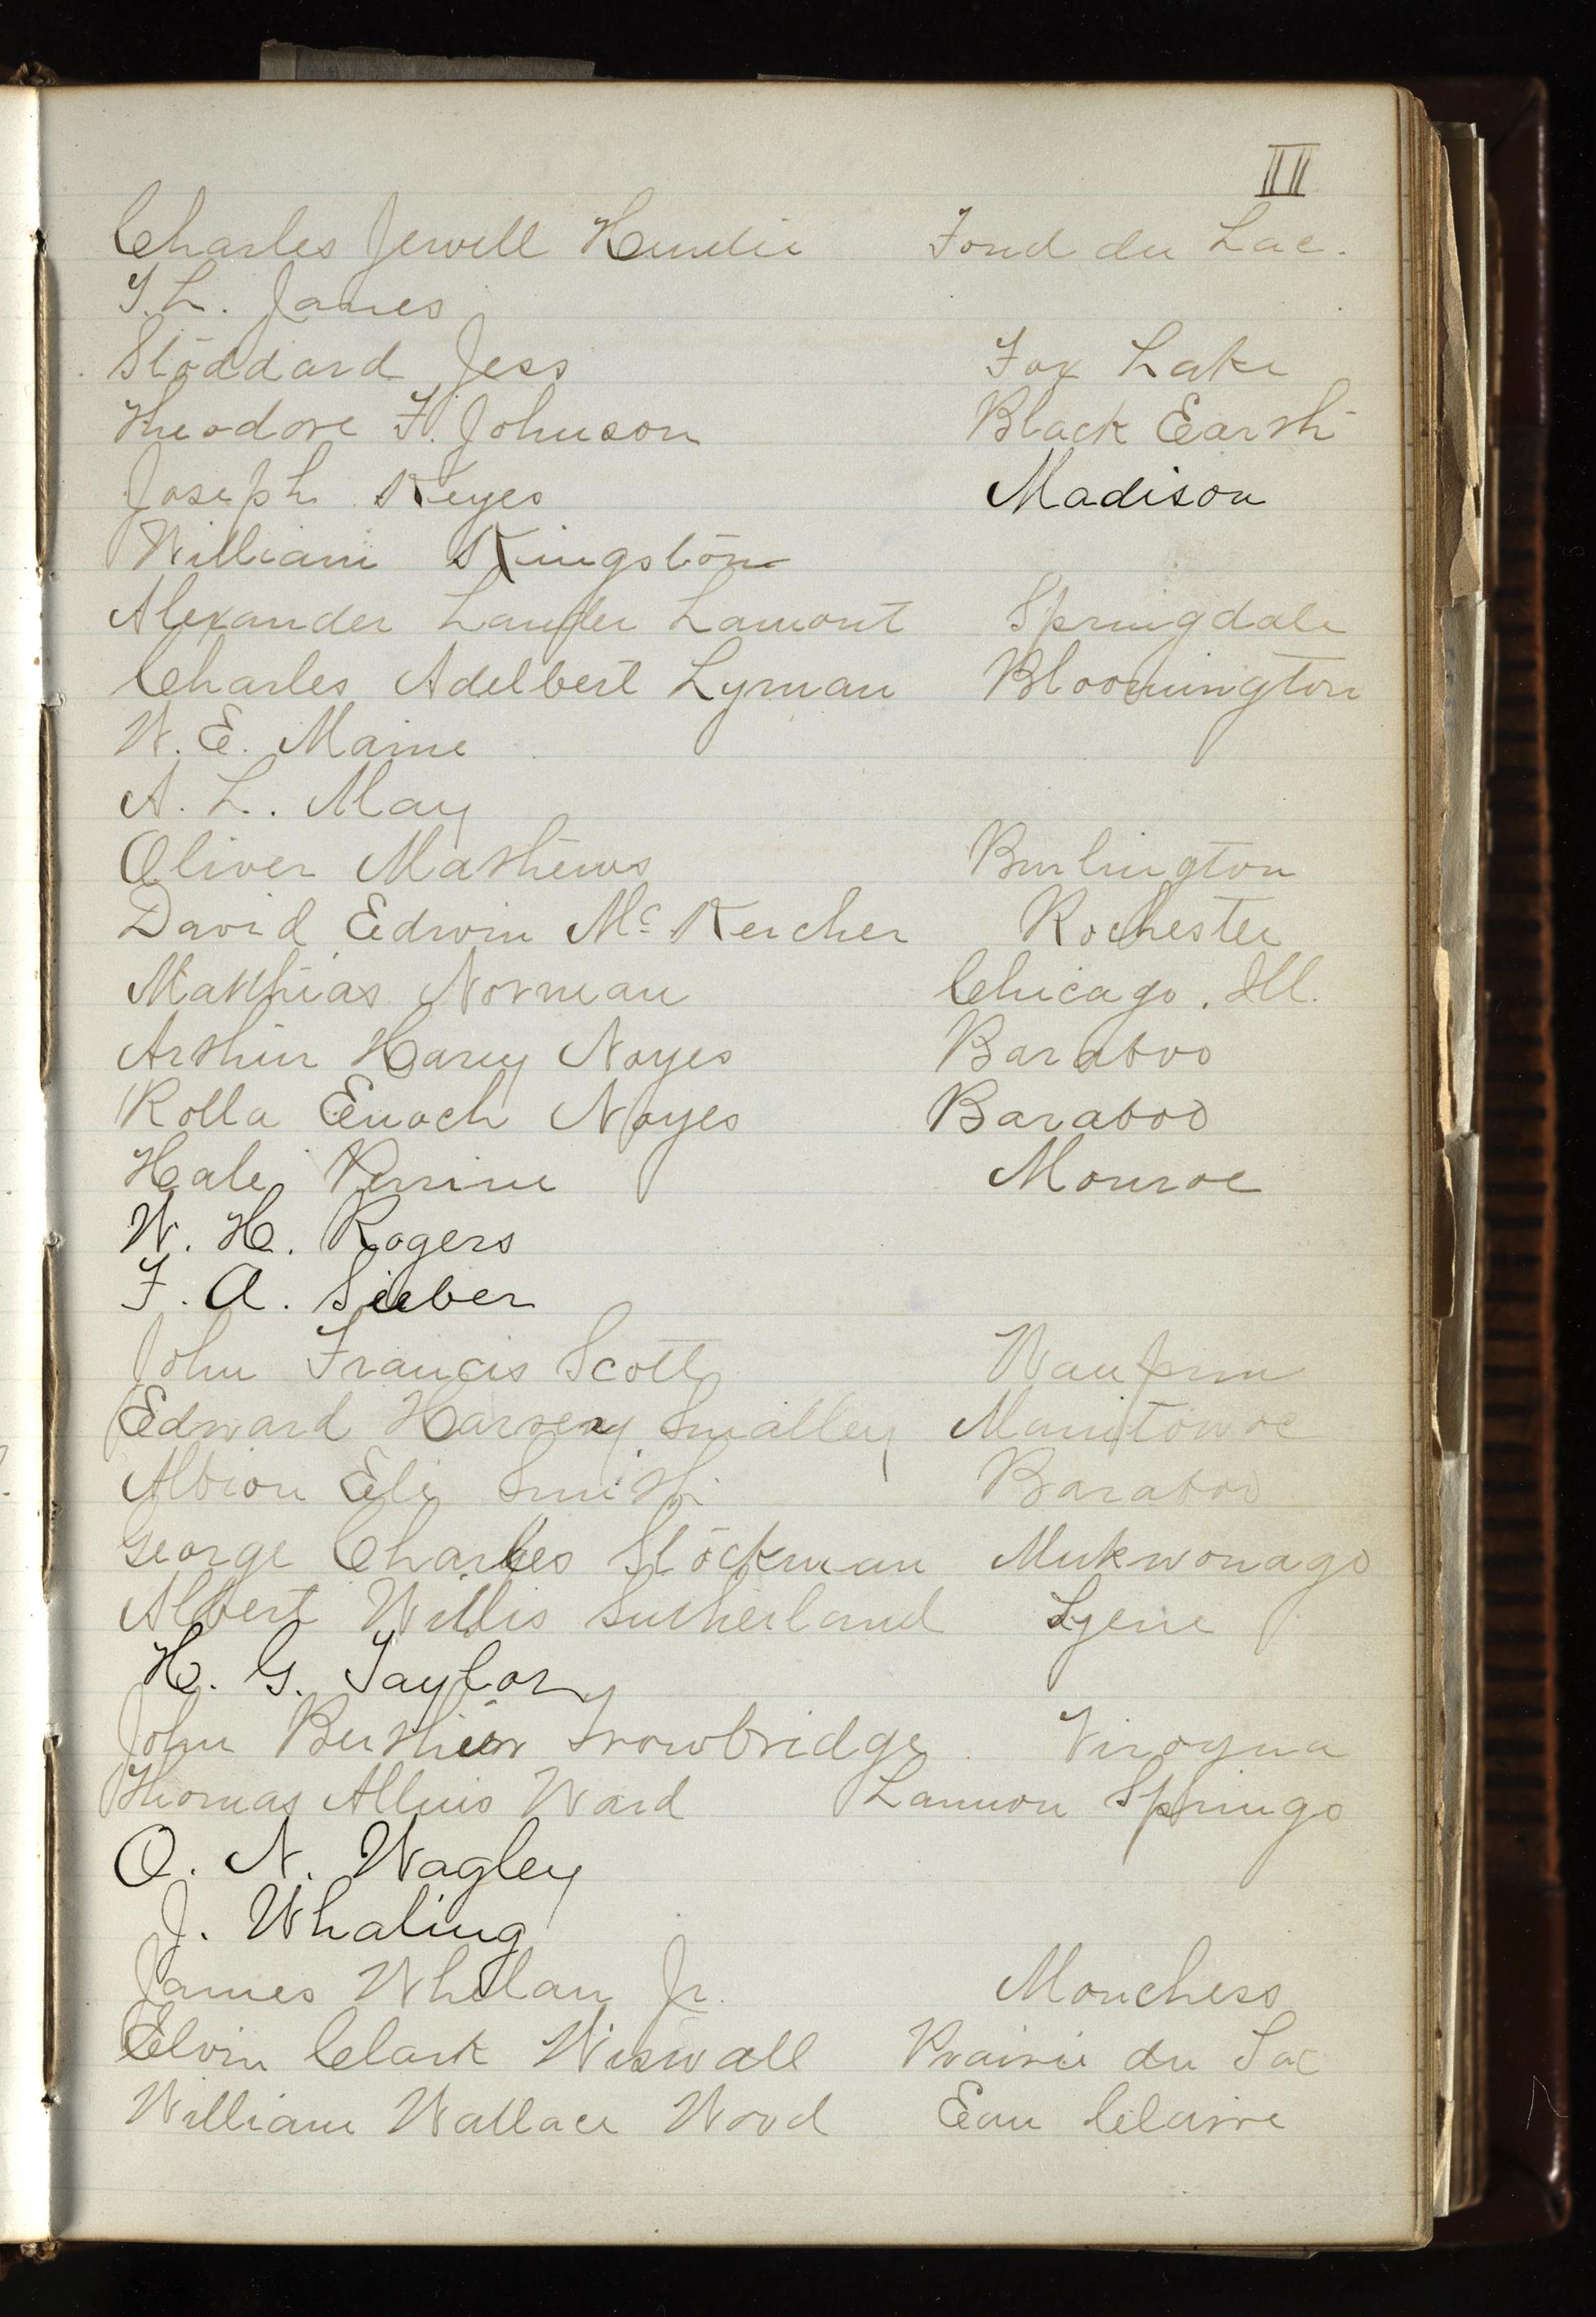 III
Charles Jewell Hendie Fond du Lac.
T. L. Janes
Stoddard Jess Fox Lake
Theodore F. Johnson Black Earth
Joseph Keyes Madison
William Kingston
Alexander Lamont Springdale
Charles Adelbert Lyman Bloomington
W. E. Maine
A. L. May
Oliver Mathews Burlington
David Edwin Mc Kercher Rochester
Matthias Norman Chicago, Ill.
Arthur Harry Noyes Baraboo
Rolla Enoch Noyes Baraboo
Hale Perrine Monroe
W. H. Rogers
F. A. Sieber
John Francis Scott Waupun
Edward Harvey Smalley Manitowoc
Albion Eli Smith Baraboo
George Charles Stockman Mukwonago
Albert Willis Sutherland Syene
H. G. Taylor
John Trowbridge Viroqua
Thomas Ward Lannon Springs
O. N. Wagley
J. Whaling
James Whelan Jr. Monchess
Elvin Clark Wiswall Prairie du Sac
William Wallace Wood Eau Claire